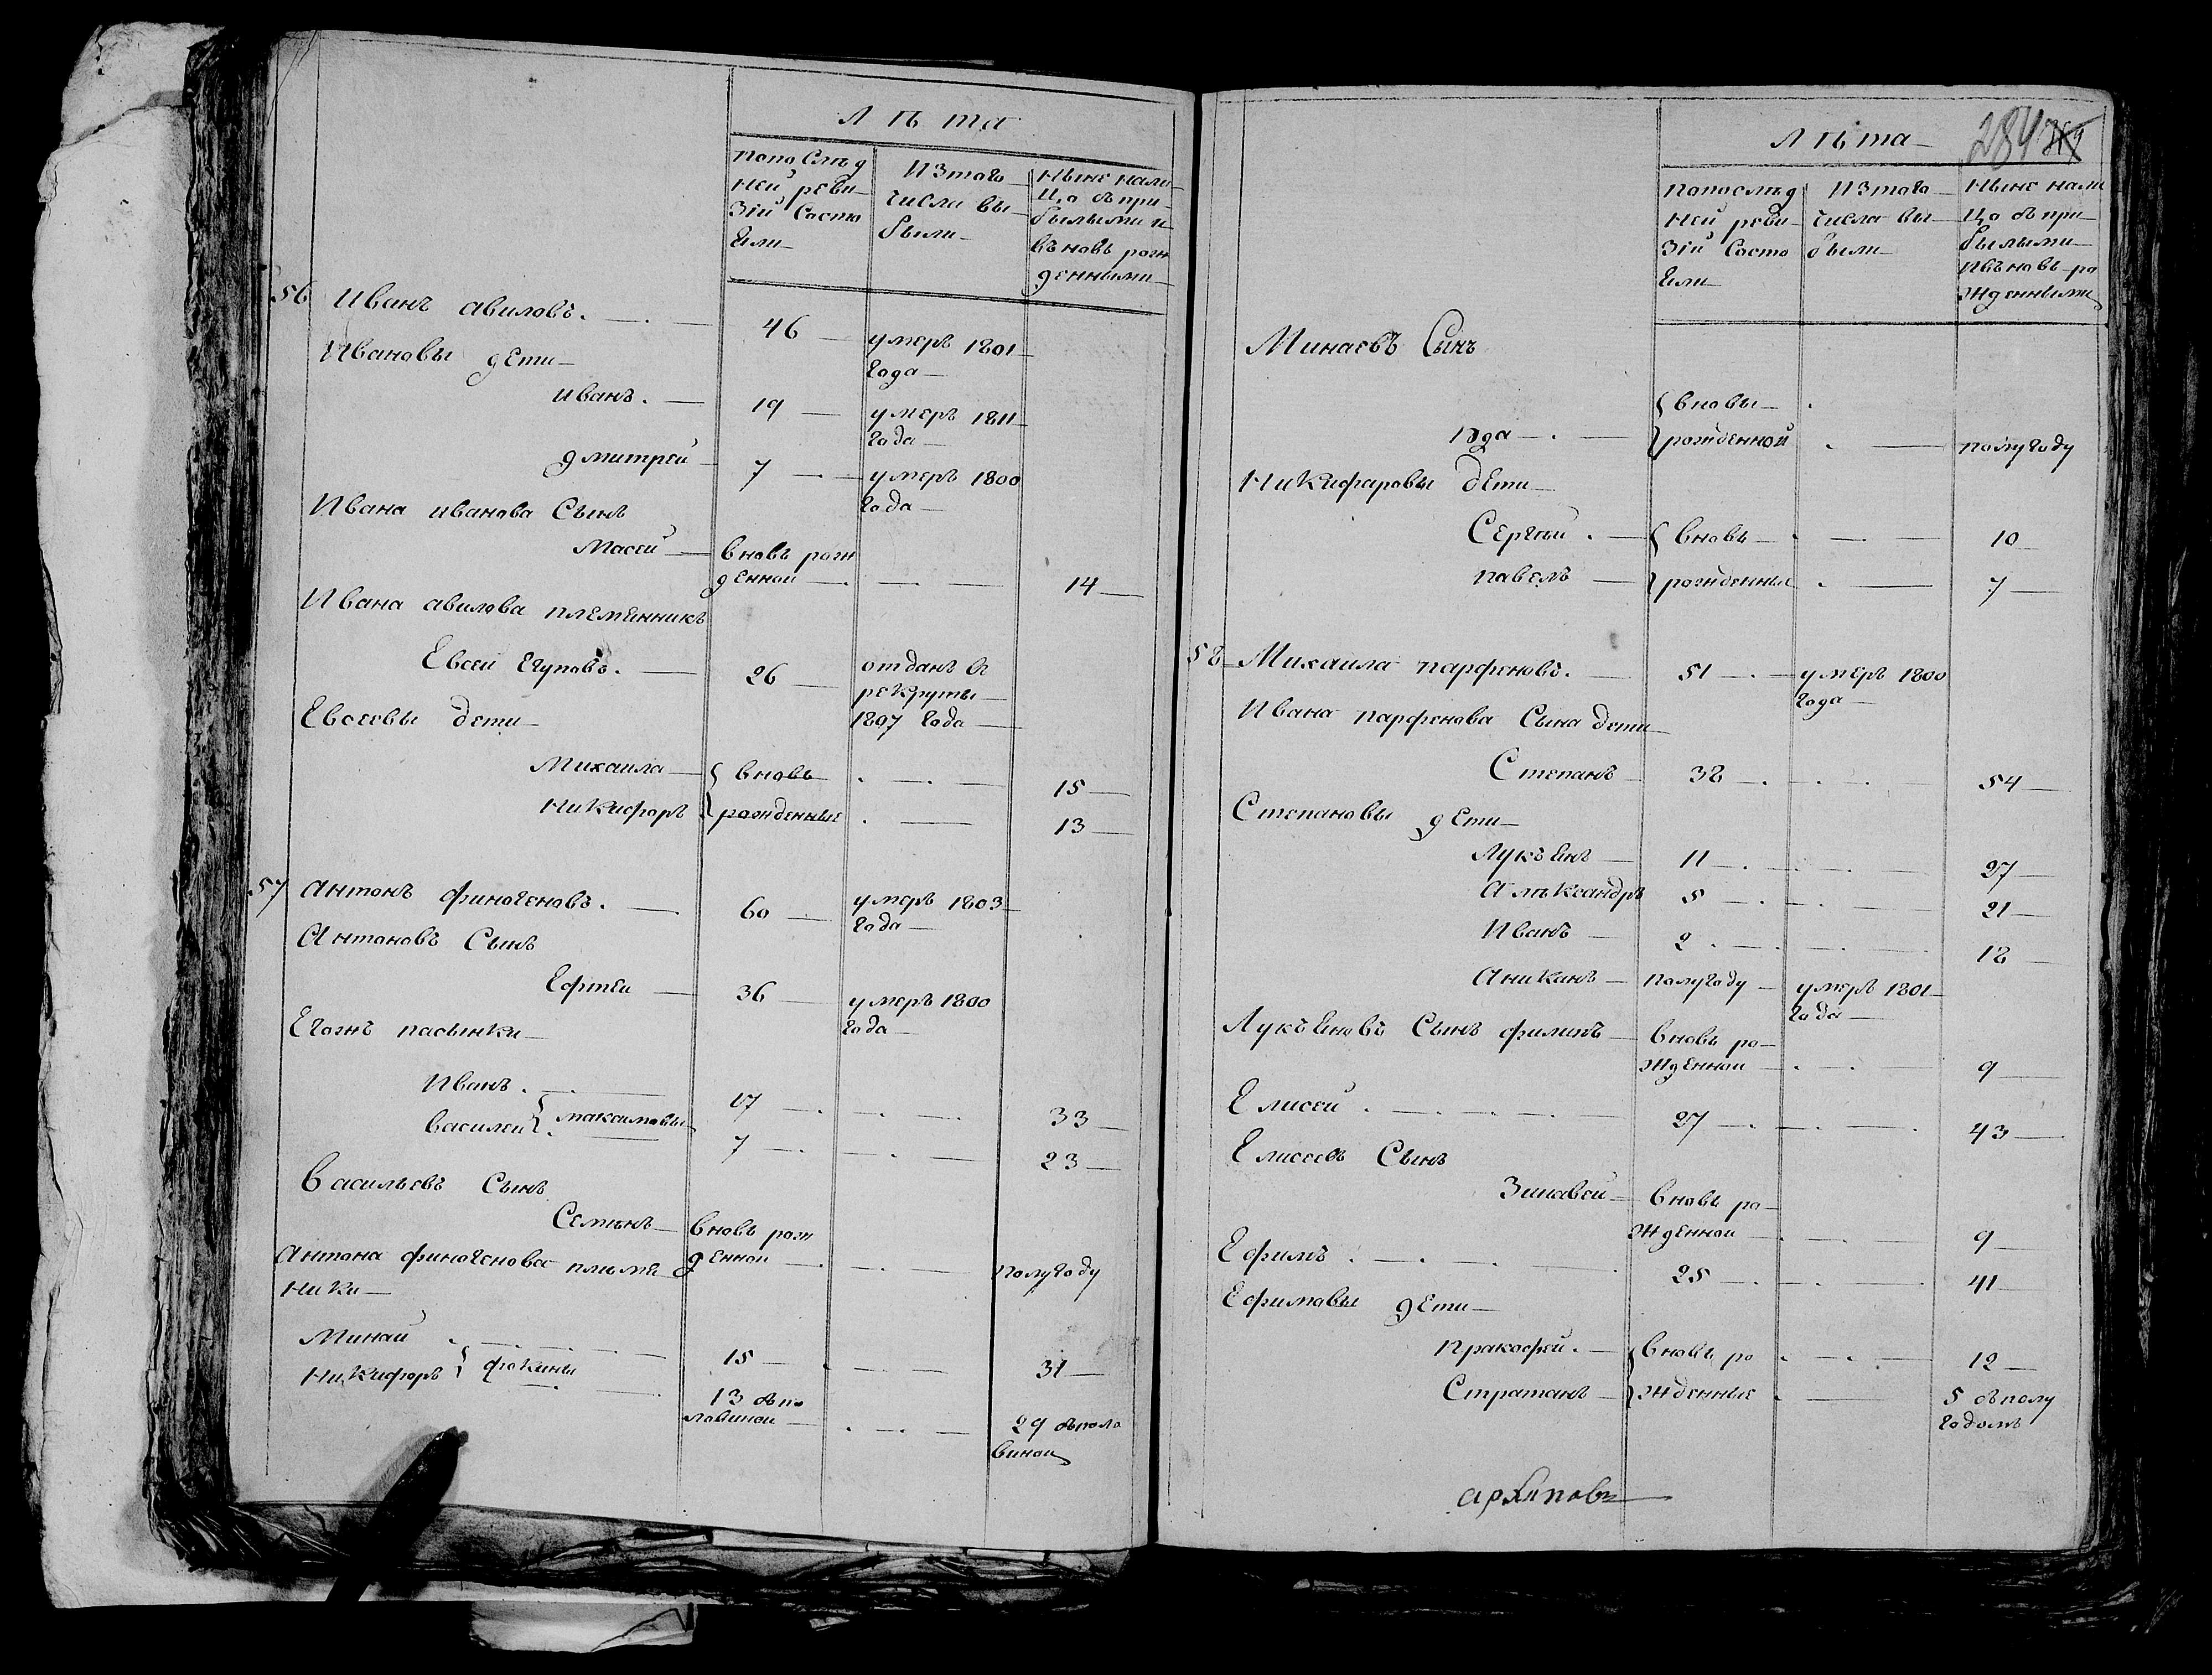 Лѣта
попослѣд
ней реви-
зіи Состо
яли
Изтого
числа вы-
были
Нынѣ нали-
цо съ при-
былыми и
въновь рож
денными
56 Иванъ авиловъ. 46 умеръ 1801
года
Ивановы дети
иванъ. 19 умеръ 1811
года
дмитрей 7 умеръ 1800
года
Ивана иванова Сынъ
Масей вновь рож
денной 14
Ивана авилова племянникъ
Евсей Егуповъ. 26 отданъ в
рекруты
1807 года
Евсеевы дети
Михаила вновь 15
Никифоръ рожденные 13
57 антонъ финогеновъ. 60 умеръ 1803
года
Антоновъ Сынъ
Ефтеи 36 умеръ 1800
года
Егожъ пасынки
Иванъ. 17 33
василей максимовы 7 23
Васильевъ Сынъ
Семенъ вновь рож
денной полугоду
Антона финогенова племя
ники
Минаи 15 31
Никифоръ фокины 13 съпо
ловиной 29 съполо
виною
Лѣта 284
попослѣд
ней реви-
зіи Состо
яли
Изтого
числа вы-
были
Нынѣ нали
цо съ при-
былыми
ивъновь ро
жденными
Минаевъ Сынъ
вновы
Iода рожденной полугоду
Никифаровы дети
Сергѣй. вновь 10
павелъ рожденные 7
58 Михаила парфеновъ. 51 умеръ 1800
года
Ивана парфенова Сына дети
Степанъ 38 54
Степановы дети
Лукъянъ 11 27
Алѣксандръ 5 21
Иванъ 2 18
Аникинъ полугоду умеръ 1801
года
Лукъяновъ Сынъ филипъ вновь ро-
жденной 9
Елисей 27 43
Елисеевъ Сынъ
Зиновей вновь ро-
жденной 9
Ефимъ 25 41
Ефимовы дети
Пракофей. вновь ро 12
Стратанъ жденные 5 съполу
годомъ
архиповъ